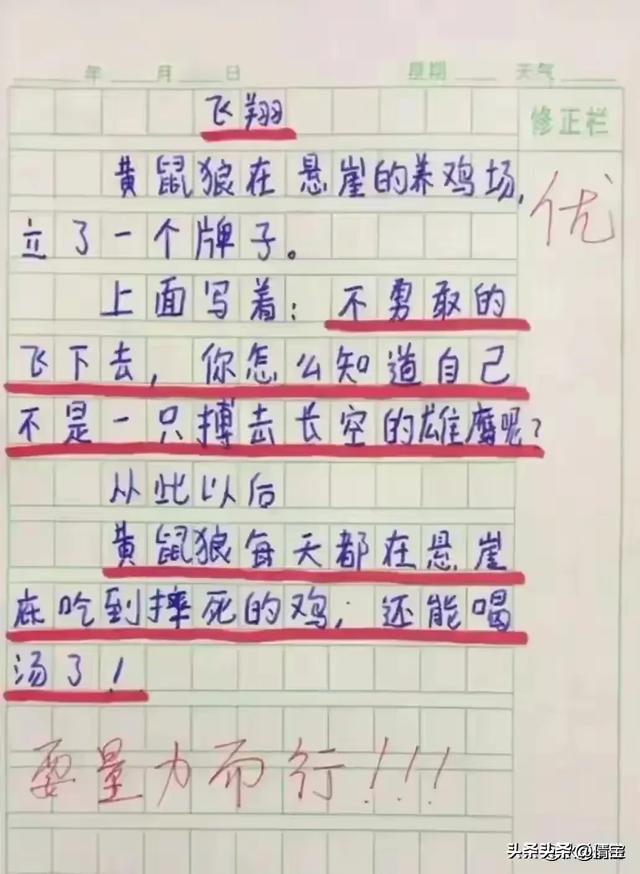 年 月 日 星期 天气
飞翔
修正栏
黄鼠狼在悬崖的养鸡场,
优
立了一个牌子。
上面写着:不勇敢的
飞下去,你怎么知道自己
不是一只搏去长空的雄鹰呢?
从此以后
黄鼠狼每天都在悬崖
底吃到摔死的鸡;还能喝
汤了!
要量力而行!!!